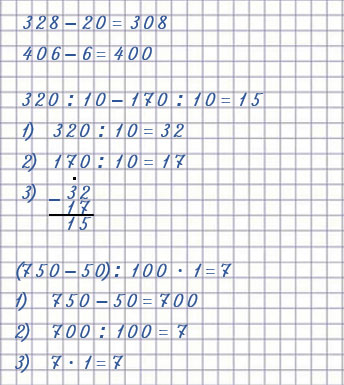 328 - 20 = 308
406 - 6 = 400
320 : 10 - 170 : 10 = 15
1) 320 : 10 = 32
2) 170 : 10 = 17
3) - 32
17
15
(750 - 50) : 100 · 1 = 7
1) 750 - 50 = 700
2) 700 : 100 = 7
3) 7 · 1 = 7